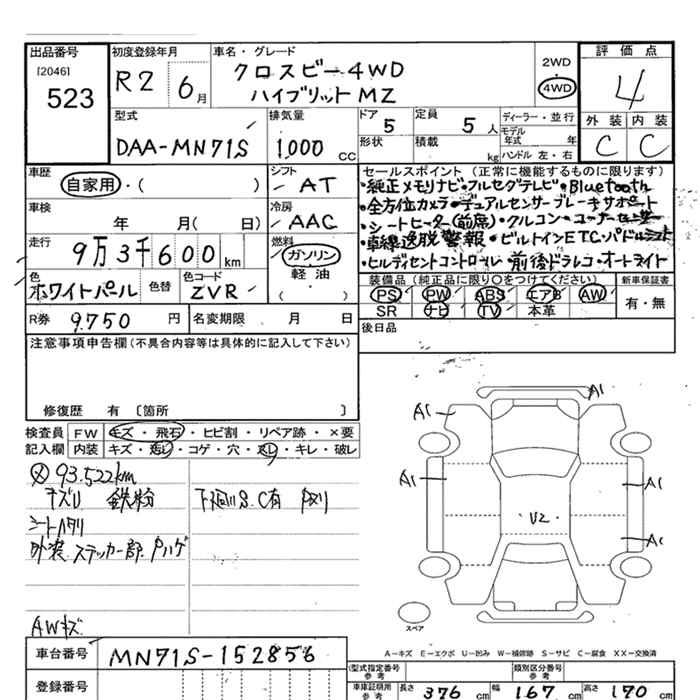 出品番号
[2046]
523
初度登録年月
R2 6月
車名・グレード
クロスビー4WD
ハイブリットMZ
2WD
4WD
評価点
4
外装 内装
C C
型式
DAA-MN71S
排気量
1000 cc
ドア
5
形状
定員
5人
積載
kg
ディーラー・並行
モデル年式 年
ハンドル 左・右
車歴
自家用・( )
シフト
AT
車検
年 月( 日)
冷房
AAC
走行
9万3千600km
燃料
ガソリン
軽油
( ・ )
色
ホワイトパール
色替
色コード
ZVR
R券 9.750 円
名変期限 月 日
セールスポイント (正常に機能するものに限ります)
・純正メモリナビ・フルセグテレビ・Bluetooth
・全方位カメラ・デュアルセンサーブレーキサポート
・シートヒーター(前席)・クルコン・コーナーセンサー
・車線逸脱警報・ビルトインETC・パドルシフト
・ヒルディセントコントロール・前後ドラレコ・オートライト
装備品 (純正品に限り〇をつけてください)
PS PW ABS エアB AW
SR ナビ TV 本革
新車保証書
有・無
後日品
注意事項申告欄(不具合内容等は具体的に記入して下さい)
修復歴 有 〔箇所 〕
検査員記入欄
FW キズ・飛石・ヒビ割・リペア跡・×要
内装 キズ・汚レ・コゲ・穴・スレ・キレ・破レ
93.522km
キズU 鉄粉
下廻りS.C有
シートハタリ
外装 ステッカー部 Pハゲ
AWキズ
A1
A1
A1
A1
A1
U2
スペア
A-キズ E-エクボ U-凹み W-補修跡 S-サビ C-腐食 XX-交換済
車台番号
MN71S-152856
登録番号
型式指定番号 参考
類別区分番号 参考
車庫証明用 参考
長さ 376 cm 幅 167 cm 高さ 170 cm